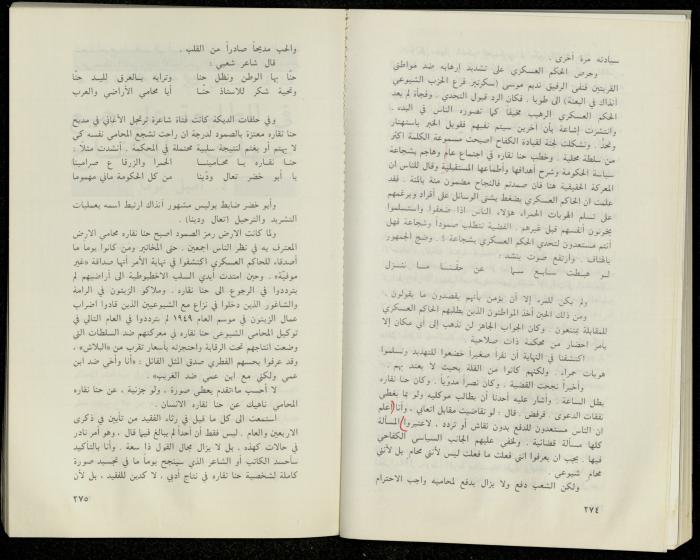 سيادته مرة أخرى .
وحرص الحكم العسكري على تشديد إرهابه ضد مواطني
القريتين فنفى الرفيق نديم موسى (سكرتير فرع الحزب الشيوعي
آنذاك في البعنة) الى طوبا . فكان الرد قبول التحدي . وفجأة لم يعد
الحكم العسكري الرهيب مخيفا كما تصوره الناس في البدء .
وانتشرت إشاعة بأن آخرين سيتم نفيهم فقوبل الخبر باستهتار
وتحدّ . وتشكلت لجنة لقيادة الكفاح اصبحت مسموعة الكلمة اكثر
من سلطة محلية . وخطب حنا نقاره في اجتماع عام وهاجم بشجاعة
سياسة الحكومة وشرح أهدافها وأطماعها المستقبلية وقال للناس ان
المعركة الحقيقية هنا فان صمدتم فالنجاح مضمون مئة بالمئة . فقد
علمت ان الحاكم العسكري يضغط بشتى الوسائل على أفراد ويرغمهم
على تسلم الهويات الحمراء. هؤلاء الناس اذا ضعفوا واستسلموا
يخونون أنفسهم قبل غيرهم . القضية تتطلب صموداً وشجاعة فهل
أنتم مستعدون لتحدي الحكم العسكري بشجاعة ؟ . وضج الجمهور
بالهتاف . وارتفع صوت ينشد :
لو هبطت سابع سما عن حقنا ما ننزل
ولم يكن للمرء إلا أن يؤمن بأنهم يقصدون ما يقولون .
ومن ذلك الحين أخذ المواطنون الذين يطلبهم الحاكم العسكري
للمقابلة يمتنعون . وكان الجواب الجاهز لن نذهب إلى اي مكان إلا
بأمر احضار من محكمة ذات صلاحية .
اكتشفنا في النهاية أن نفراً صغيراً خضعوا للتهديد وتسلموا
هويات حمراء . ولكنهم كانوا من القلة بحيث لا يعتد بهم .
وأخيراً نجحت القضية . وكان نصراً مدوّياً . وكان حنا نقاره
بطل الساعة . وأشار عليه أحدنا أن يطالب موكليه ولو بما يغطي
نفقات الدعوى . فرفض . قال : لو تقاضيت مقابل اتعابي ، وأنا أعلم
ان الناس مستعدون للدفع بدون نقاش أو تردد ، لاعتبروا المسألة
كلها مسألة قضائية . ولخفي عليهم الجانب السياسي الكفاحي
فيها . يجب ان يعرفوا انني فعلت ما فعلت ليس لأنني محام بل لأنني
محام شيوعي .
ولكن الشعب دفع ولا يزال يدفع لمحاميه واجب الاحترام
٢٧٤
والحب مديحاً صادراً من القلب .
قال شاعر شعبي :
حنّا بها الوطن ونظل حنا وترابه بالعرق لليد حنّا
وتحية شكر للاستاذ حنا أيا محامي الأراضي والعرب
وفي حلقات الدبكة كانت فتاة شاعرة ترتجل الأغاني في مديح
حنا نقاره معتزة بالصمود لدرجة ان راحت تشجع المحامي نفسه كي
لا يهتم أو يغتم لنتيجة سلبية محتملة في المحكمة . أنشدت مثلا :
حنا نقاره يا محامينا الحمرا والزرقا ع صرامينا
يا أبو خضر تعال ودّينا من كل الحكومة ماني مهموما
وأبو خضر ضابط بوليس مشهور آنذاك ارتبط اسمه بعمليات
التشريد والترحيل (تعال ودينا) .
ولما كانت الارض رمز الصمود اصبح حنا نقاره محامي الارض
المعترف به في نظر الناس اجمعين . حتى المخاتير ومن كانوا يوماً ما
أصدقاء للحاكم العسكري اكتشفوا في نهاية الأمر أنها صداقة «غير
موفيّة» . وحين امتدت أيدي السلب الاخطبوطية الى أراضيهم لم
يترددوا في الرجوع الى حنا نقاره . وملاكو الزيتون في الرامة
والشاغور الذين دخلوا في نزاع مع الشيوعيين الذين قادوا اضراب
عمال الزيتون في موسم العام ١٩٤٩ لم يترددوا في العام التالي في
توكيل المحامي الشيوعي حنا نقاره في معركتهم ضد السلطات التي
وضعت انتاجهم تحت الرقابة واحتجزته بأسعار تقرب من «البلاش» .
وقد عرفوا بحسهم الفطري صدق المثل القائل : «أنا وأخي ضد ابن
عمي ولكني مع ابن عمي ضد الغريب» .
لا أحسب ما تقدم يعطي صورة ، ولو جزئية ، عن حنا نقاره
المحامي ناهيك عن حنا نقاره الانسان .
استمعت الى كل ما قيل في رثاء الفقيد من تأبين في ذكرى
الاربعين والعام . ليس فقط أن أحداً لم يبالغ فيما قال ، وهو أمر نادر
في حالات كهذه ، بل لا يزال مجال القول ذا سعة . وأنا بالتأكيد
سأحسد الكاتب أو الشاعر الذي سينجح يوماً ما في تجسيد صورة
كاملة لشخصية حنا نقاره في نتاج أدبي ، لا كدين للفقيد ، بل لأن
٢٧٥